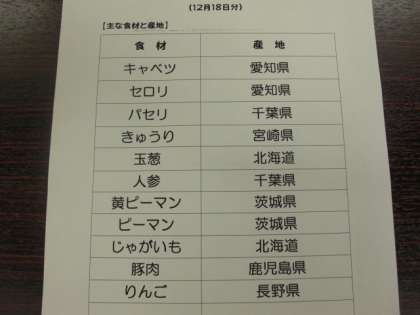 (12月18日分)
【主な食材と産地】
食材 産地
キャベツ 愛知県
セロリ 愛知県
パセリ 千葉県
きゅうり 宮崎県
玉葱 北海道
人参 千葉県
黄ピーマン 茨城県
ピーマン 茨城県
じゃがいも 北海道
豚肉 鹿児島県
りんご 長野県